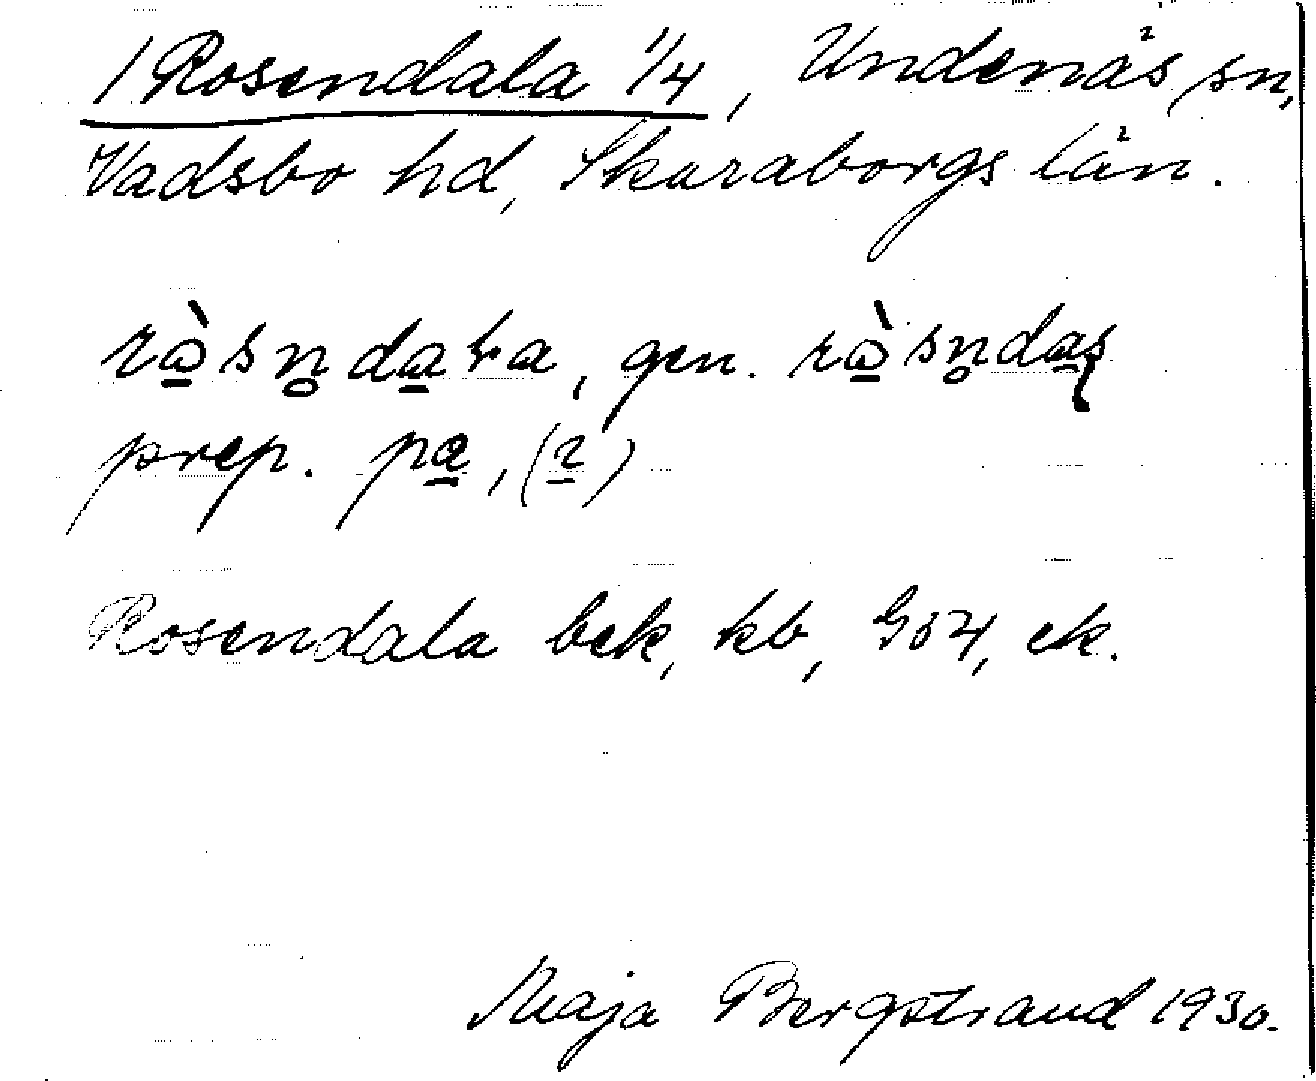 / Rosendala 1/4, Undenäs sn,
Vadsbo hd, Skaraborgs län.
rà̱sn̥da̱ɫa, gen. rà̱sn̥da̱ʂ
prep. pa̱, (2̱)
Rosendala bek, kb, GS4, ek.
Maja Bergstrand 1930.